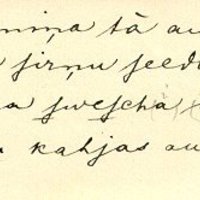 miņa tā au
sirņu seed
a swescha
kahjas au